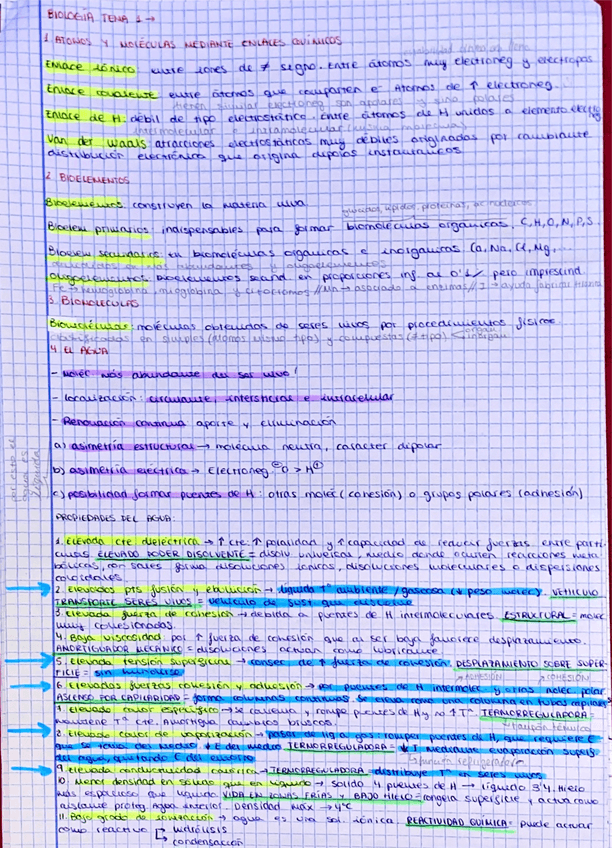 BIOLOGÍA TEMA 1 →
1 ÁTOMOS Y MOLÉCULAS MEDIANTE ENLACES QUÍMICOS
Enlace iónico: entre iones de ≠ signo. Entre átomos muy electroneg y electropos
Enlace covalente: entre átomos que comparten e⁻. Átomos de ↑ electroneg.
tienen similar electroneg son apolares y sino polares
Enlace de H: débil de tipo electrostático. Entre átomos de H unidos a elemento electroneg
intermolecular o intramolecular
Van der Waals: atracciones electrostáticas muy débiles originadas por cambiante
distribución electrónica que origina dipolos instantáneos
2 BIOELEMENTOS
Bioelementos: construyen la materia viva
glúcidos, lípidos, proteínas, ac nucleicos
Bioelem primarios: indispensables para formar biomoléculas orgánicas, C,H,O,N,P,S.
Bioelem secundarios: en biomoléculas orgánicas e inorgánicas Ca, Na, Cl, Mg,...
Oligoelementos: bioelementos secund. en proporciones inf al 0'1% pero imprescind.
Fe → hemoglobina, mioglobina y citocromos // Mn → asociado a enzimas // I → ayuda fabricar
3 BIOMOLÉCULAS
Biomoléculas: moléculas obtenidas de seres vivos por procedimientos físicos
clasificadas en simples (átomos mismo tipo) y compuestas (≠ tipo) orgán inorgán
4 EL AGUA
- Moléc más abundante del ser vivo!
- Localización: circulante, intersticial e intracelular
- Renovación continua aporte y eliminación
a) asimetría estructural → molécula neutra, carácter dipolar
b) asimetría eléctrica → Electroneg ⊖O > H⊕
c) posibilidad formar puentes de H: otras moléc (cohesión) o grupos polares (adhesión)
PROPIEDADES DEL AGUA:
1. Elevada cte dieléctrica → ↑ cte: ↑ polaridad y ↑ capacidad de reducir fuerzas entre partí-
culas ELEVADO PODER DISOLVENTE = disolv universal, medio donde ocurren reacciones meta
bólicas, con sales forma disoluciones iónicas, disoluciones moleculares o dispersiones
coloidales
2. Elevados pts fusión y ebullición → líquida Tª ambiente / gaseosa (↓ peso molec). VEHÍCULO
TRANSPORTE SERES VIVOS = vehículo de sust que disuelve
3. Elevada fuerza de cohesión → debida a puentes de H intermoleculares ESTRUCTURAL = moléc
muy cohesionadas.
4. Baja viscosidad por ↑ fuerza de cohesión que al ser baja favorece desplazamiento.
AMORTIGUADOR MECÁNICO = disoluciones actúan como lubricante
5. Elevada tensión superficial → consec de ↑ fuerza de cohesión. DESPLAZAMIENTO SOBRE SUPER-
FICIE = sin hundirse
ADHESIÓN COHESIÓN
6. Elevadas fuerzas cohesión y adhesión → por puentes de H intermolec y otras molec polar
ASCENSO POR CAPILARIDAD = forma columnas continuas. Se eleva como una columna en tubos capilares
7. Elevado calor específico → se calienta y rompe puentes de H y no ↑ Tª. TERMORREGULADORA =
mantiene Tª cte. Amortigua cambios bruscos.
8. Elevado calor de vaporización → pasar de líq a gas: romper puentes de H, se requiere E
que se toma del medio ↓ E del medio TERMORREGULADORA = ↓ T mediante evaporación superf
del agua, quitando E del entorno
función refrigeradora
9. Elevada conductividad calórica → TERMORREGULADORA distribuye Tª en seres vivos
10. Menor densidad en sólido que en líquido → sólido 4 puentes de H → líquido 3'4. Hielo
más espacioso que líquido VIDA EN ZONAS FRÍAS Y BAJO HIELO = congela superficie y actúa como
aislante proteg agua interior. Densidad máx → 4ºC
11. Bajo grado de ionización → agua es una sol. iónica. REACTIVIDAD QUÍMICA = puede actuar
como reactivo → hidrólisis
→ condensación